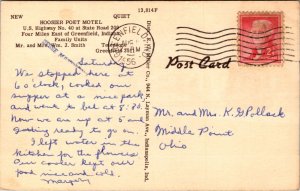 NEW QUIET 13,814F
HOOSIER POET MOTEL
U. S. Highway No. 40 at State Road 209
Four Miles East of Greenfield, Indiana
Family Units
Mr. and Mrs. Wm. J. Smith Telephone
Greenfield
GREENFIELD, IND.
PM
1956
2¢
Post Card
Saturday
We stopped here at
6 o'clock, cooked our
supper at a nice park
and went to bed at 8:30.
Now we are up at 5 and
getting ready to go on.
I left water in the
kitchen for the flowers
Pen cooler kept over
food nice and cold.
Margery
Mr. and Mrs. K. G. Pollock
Middle Point
Ohio
Indianapolis, Ind.